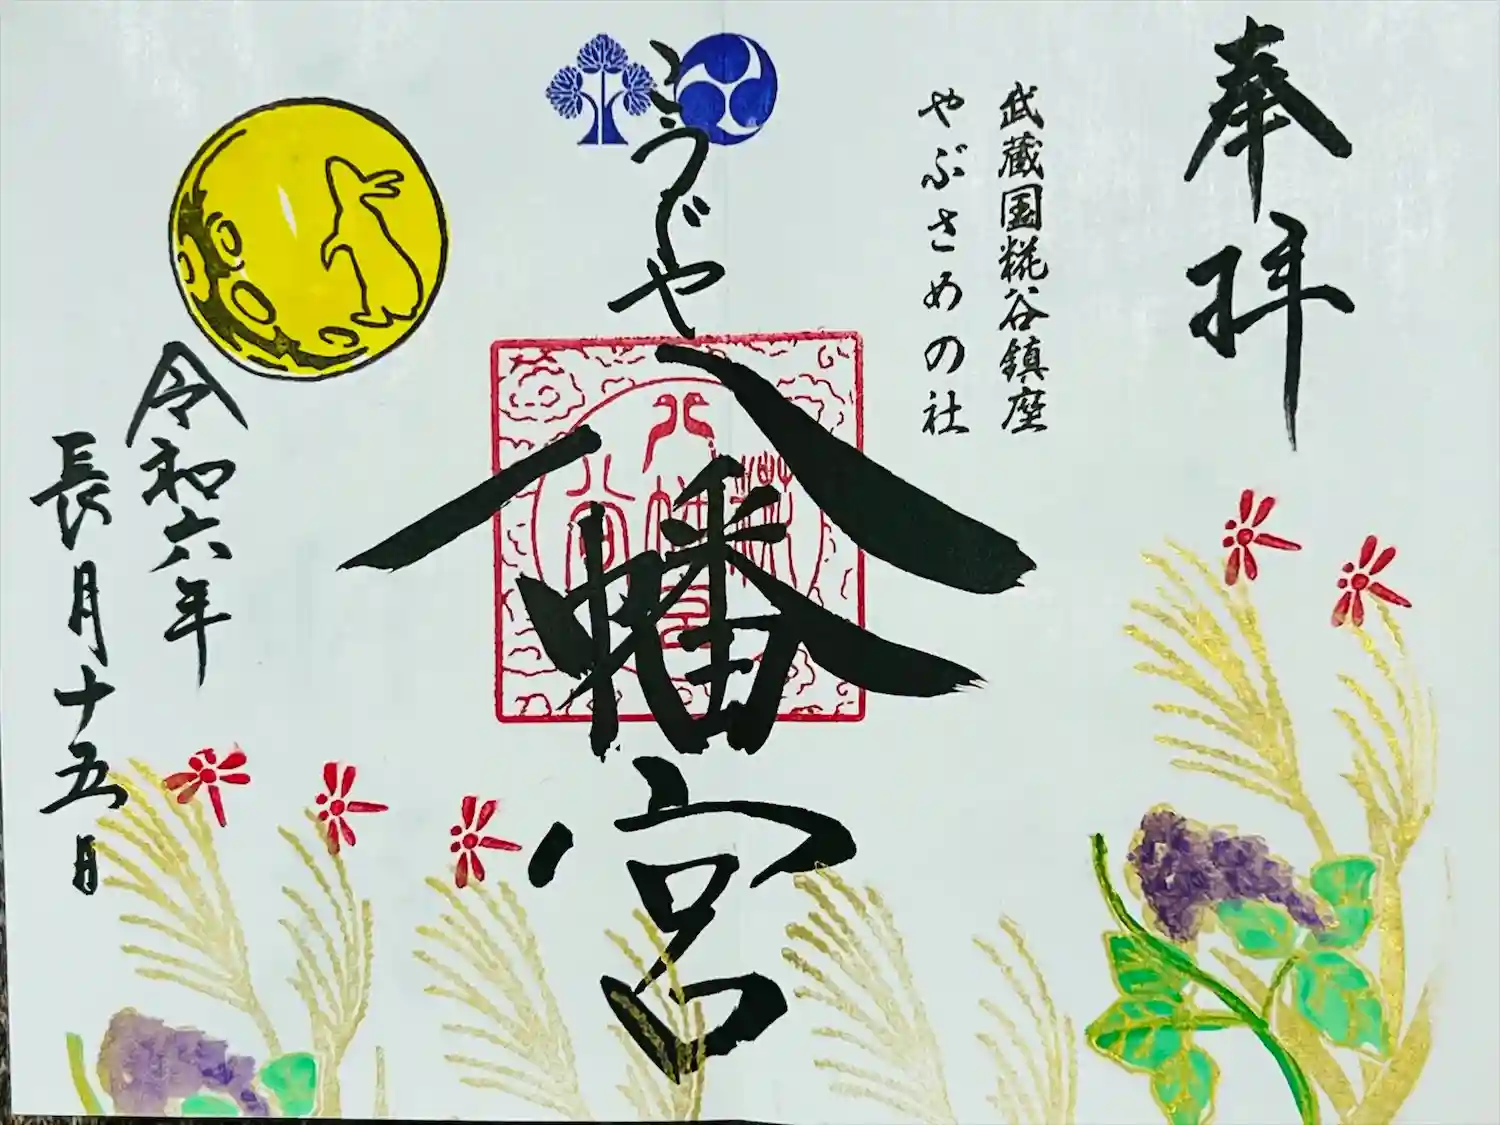 奉拝
武蔵国糀谷鎮座
やぶさめの社
こうじや
八幡宮
令和六年
長月十五日